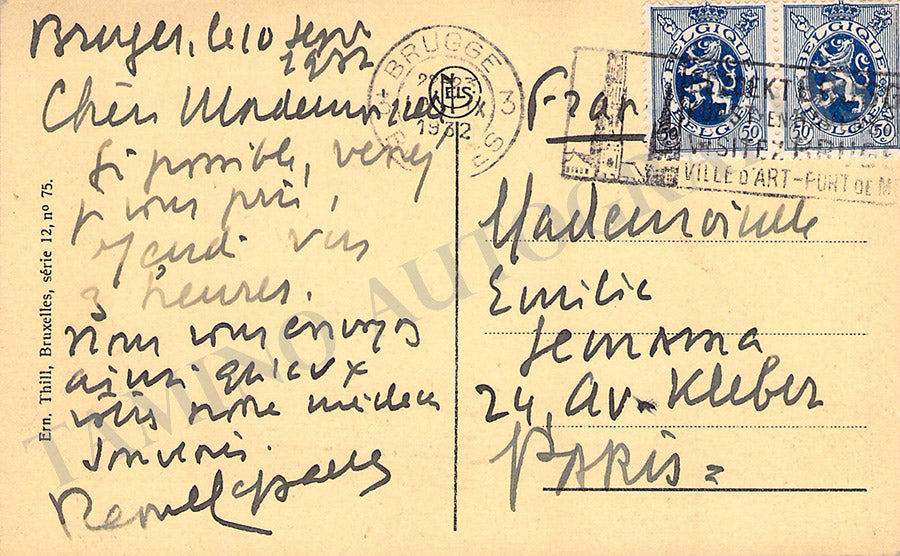 Bruges, le 10 Sept
1932
Chère Mademoiselle
Si possible, venez
je vous prie,
Mardi vers
3 heures.
Nous vous envoyons
ainsi qu'aux
vôtres notre meilleur
Souvenir.
Ern. Thill, Bruxelles, série 12, nº 75.
BRUGGE 3
NELS
IX
1932
France
BELGIQUE BELGIQUE
50 BELGIE 50 50 BELGIE 50
VILLE D'ART - PORT DE M
Mademoiselle
Emilie
24, Av. Kleber
PARIS =
TAMINO AUTOGRAPHS